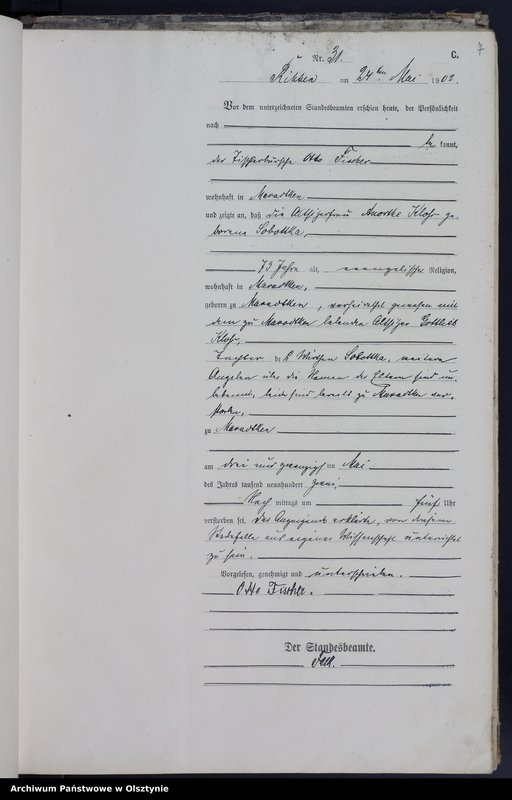 7
C.
Nr. 31.
am 24ten Mai 1902.
Vor dem unterzeichneten Standesbeamten erschien heute, der Persönlichkeit
nach
be kannt,
der Otto Fischer
wohnhaft in Maradtken
und zeigte an, daß die Altsitzerfrau Klossy ge-
borene Sobottka,
73 Jahre alt, evangelischer Religion,
wohnhaft in Maradtken,
geboren zu Maradtken, verheirathet gewesen mit
dem zu Maradtken lebenden Altsitzer Gottlieb
Tochter des Wirthen Sobottka, weitere
Angaben über die Namen der Eltern sind un-
bekannt, beide sind bereits zu Maradtken ver-
storben,
zu Maradtken
am drei und zwanzigsten Mai
des Jahres tausend neunhundert zwei,
Nach mittags um fünf Uhr
verstorben sei. Der Anzeigende erklärte, von diesem
Sterbefalle aus eigener Wissenschaft unterrichtet
zu sein.
Vorgelesen, genehmigt und unterschrieben.
Otto Fischer.
Der Standesbeamte.
Archiwum Państwowe w Olsztynie